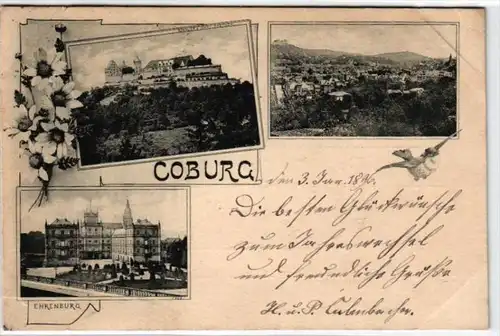 COBURG
den 3. Jan. 189
Die besten Glückwünsche
zum Jahreswechsel
und freundliche Grüße
H. u. P. Culmbacher.
EHRENBURG